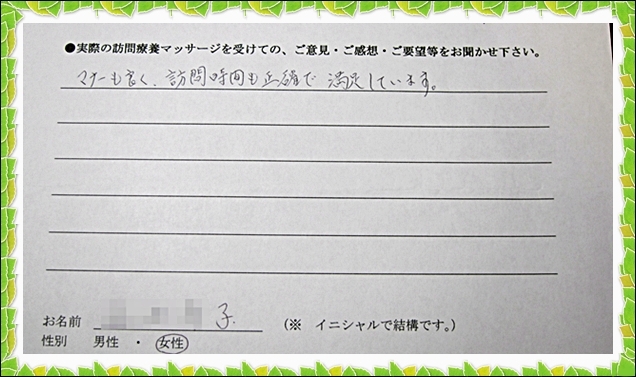 ●実際の訪問療養マッサージを受けての、ご意見・ご感想・ご要望等をお聞かせ下さい。
マナーも良く、訪問時間も正確で 満足しています。
お名前 子 (※ イニシャルで結構です。)
性別 男性 ・ 女性